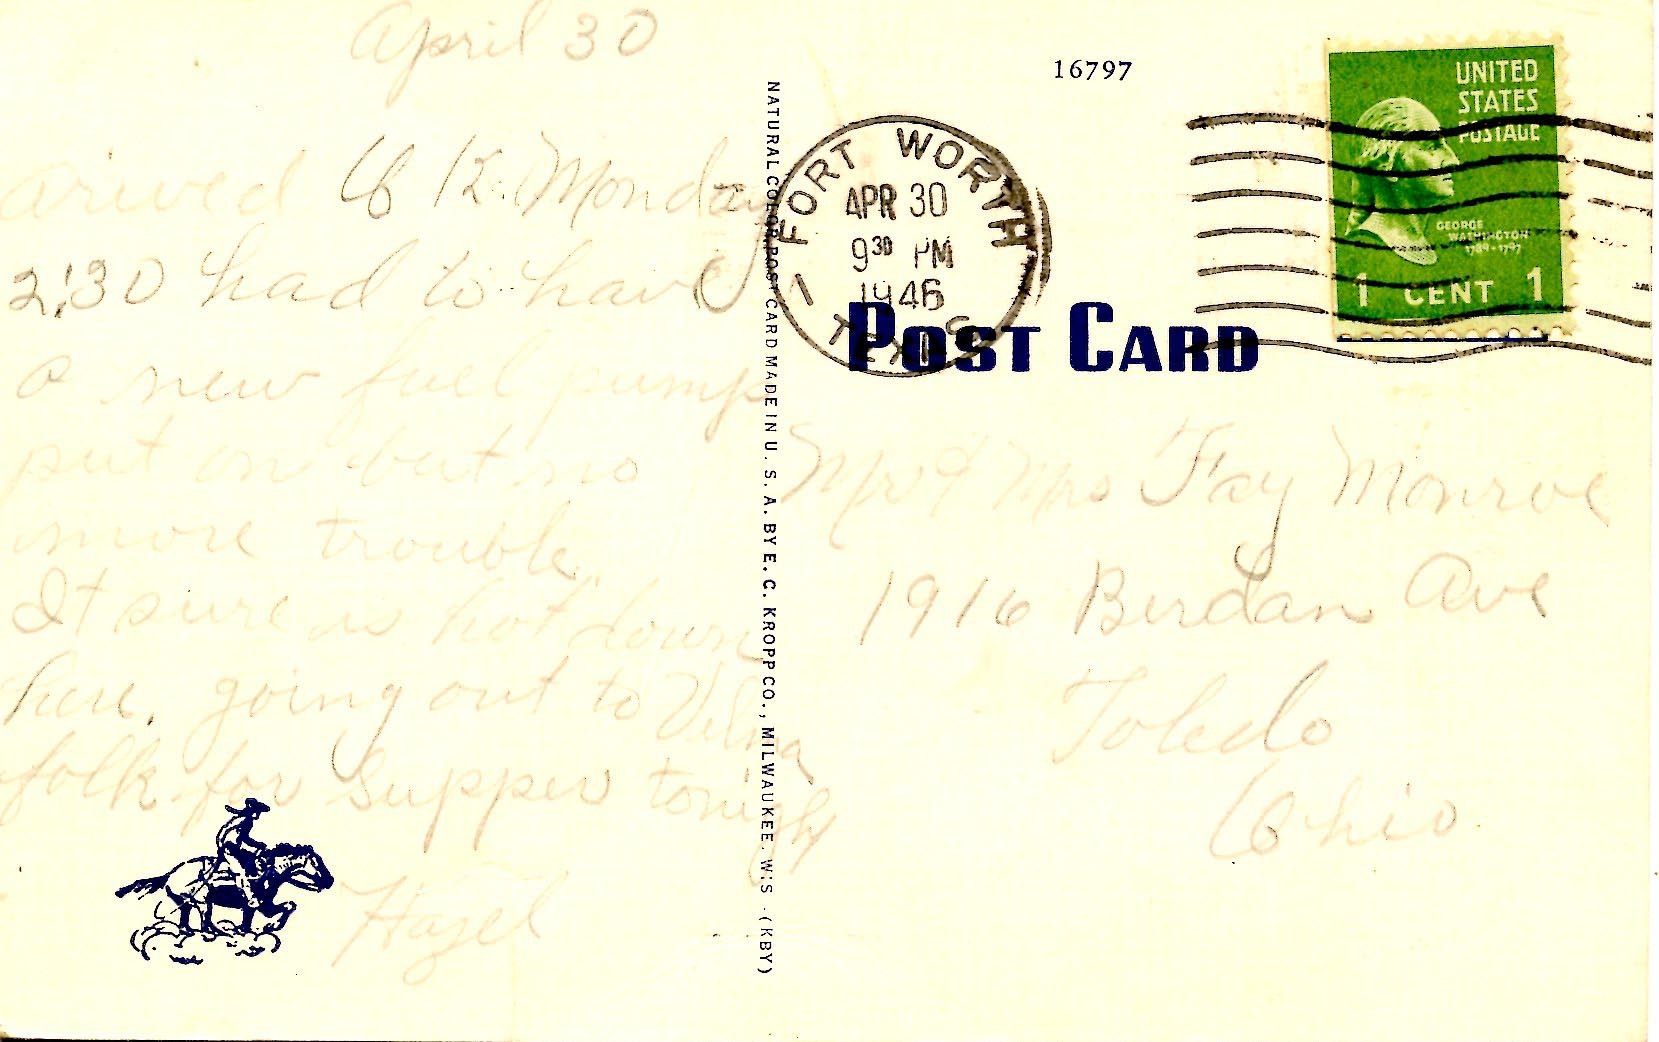 April 30
arived 12. Monday
2:30 had to have
a new fuel pump
put on but no
more trouble.
It sure is hot down
here. going out to Velma
folk for supper tonight
Hazel
NATURAL COLOR POST CARD MADE IN U. S. A. BY E. C. KROPP CO., MILWAUKEE. WIS (KBY)
16797
FORT WORTH
APR 30
9 30 PM
1946
TEXAS
UNITED
STATES
POSTAGE
GEORGE
WASHINGTON
1789-1797
1 CENT 1
POST CARD
Mr & Mrs Fay Monroe
1916 Berdan Ave
Toledo
Ohio